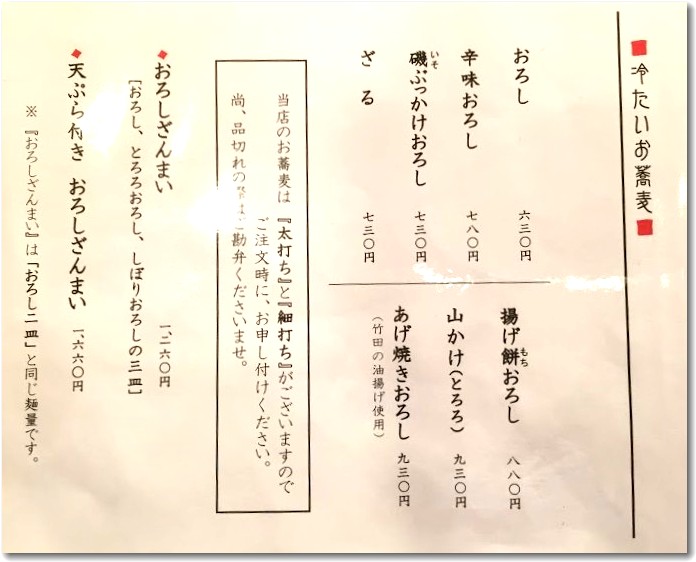 冷たいお蕎麦
おろし 六三〇円
辛味おろし 七八〇円
磯ぶっかけおろし 七三〇円
いそ
ざる 七三〇円
揚げ餅おろし 八八〇円
もち
山かけ(とろろ) 九三〇円
あげ焼きおろし 九三〇円
(竹田の油揚げ使用)
当店のお蕎麦は『太打ち』と『細打ち』がございますので
ご注文時に、お申し付けください。
尚、品切れの際はご勘弁くださいませ。
おろしざんまい 一、二六〇円
[おろし、とろろおろし、しぼりおろしの三皿]
天ぷら付き おろしざんまい 一、六六〇円
※『おろしざんまい』は「おろし二皿」と同じ麺量です。